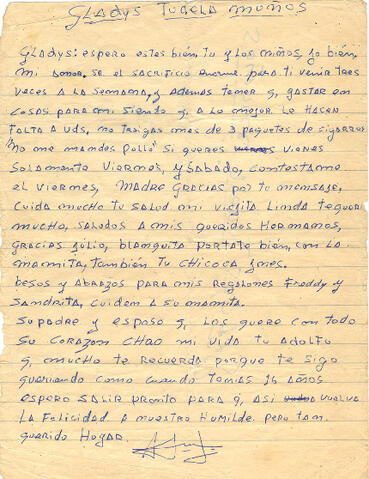 GLADYS TUDELA MUÑOS
GLADYS: espero estes bien, tu y los niños, yo bien,
mi amor, se el sacrificio enorme para ti venir tres
veces a la semana, y ademas tener q, gastar en
cosas para mi siendo q, a lo mejor le hacen
falta a uds, no traigas mas de 3 paquetes de sigarros
"no me mandes pollo" si queres vienes
solamente viernes, y sabado, contestame
el viernes, madre gracias por tu mensaje,
cuida mucho tu salud mi viejita linda te queri
mucho, saludos a mis queridos hermanos,
gracias julio, blanquita portate bien, con la
mamita, tambien tu chicoca ines.
besos y abrazos para mis regalones Freddy y
Sandrita, cuiden a su mamita.
su padre y esposo q, los quere con todo
su corazon chao mi vida tu adolfo
q, mucho te recuerda porque te sigo
queriendo como cuando tenias 16 años
espero salir pronto para q, asi vuelva
la felicidad a nuestro humilde pero tam
querido hogar.